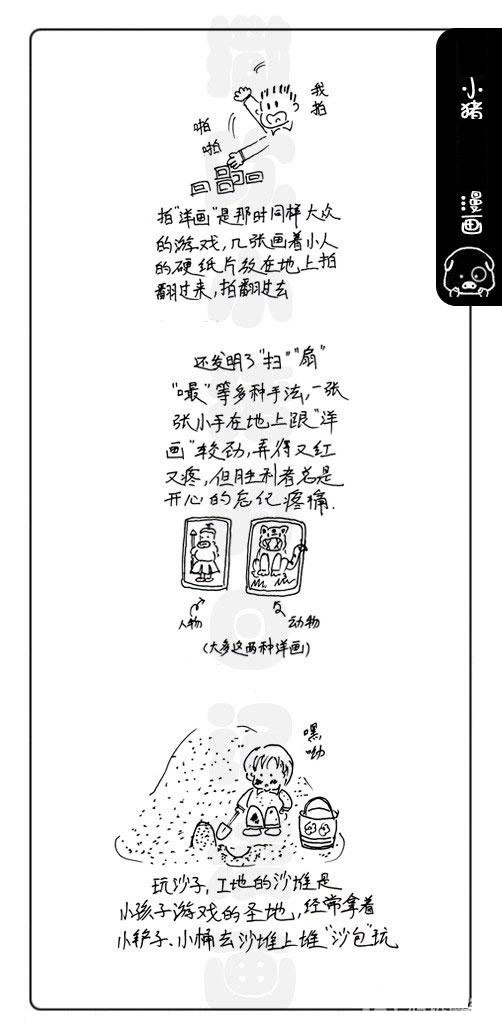 小猪
漫画
我拍
啪
啪
拍"洋画"是那时同样大众
的游戏,几张画着小人
的硬纸片放在地上拍
翻过来,拍翻过去
还发明了"扫""扇"
"嘬"等多种手法,一张
张小手在地上跟"洋
画"较劲,弄得又红
又疼,但胜利者总是
开心的忘记疼痛.
人物
动物
(大多这两种洋画)
嘿
呦
玩沙子,工地的沙堆是
小孩子游戏的圣地,经常拿着
小铲子、小桶去沙堆上堆"沙包"玩